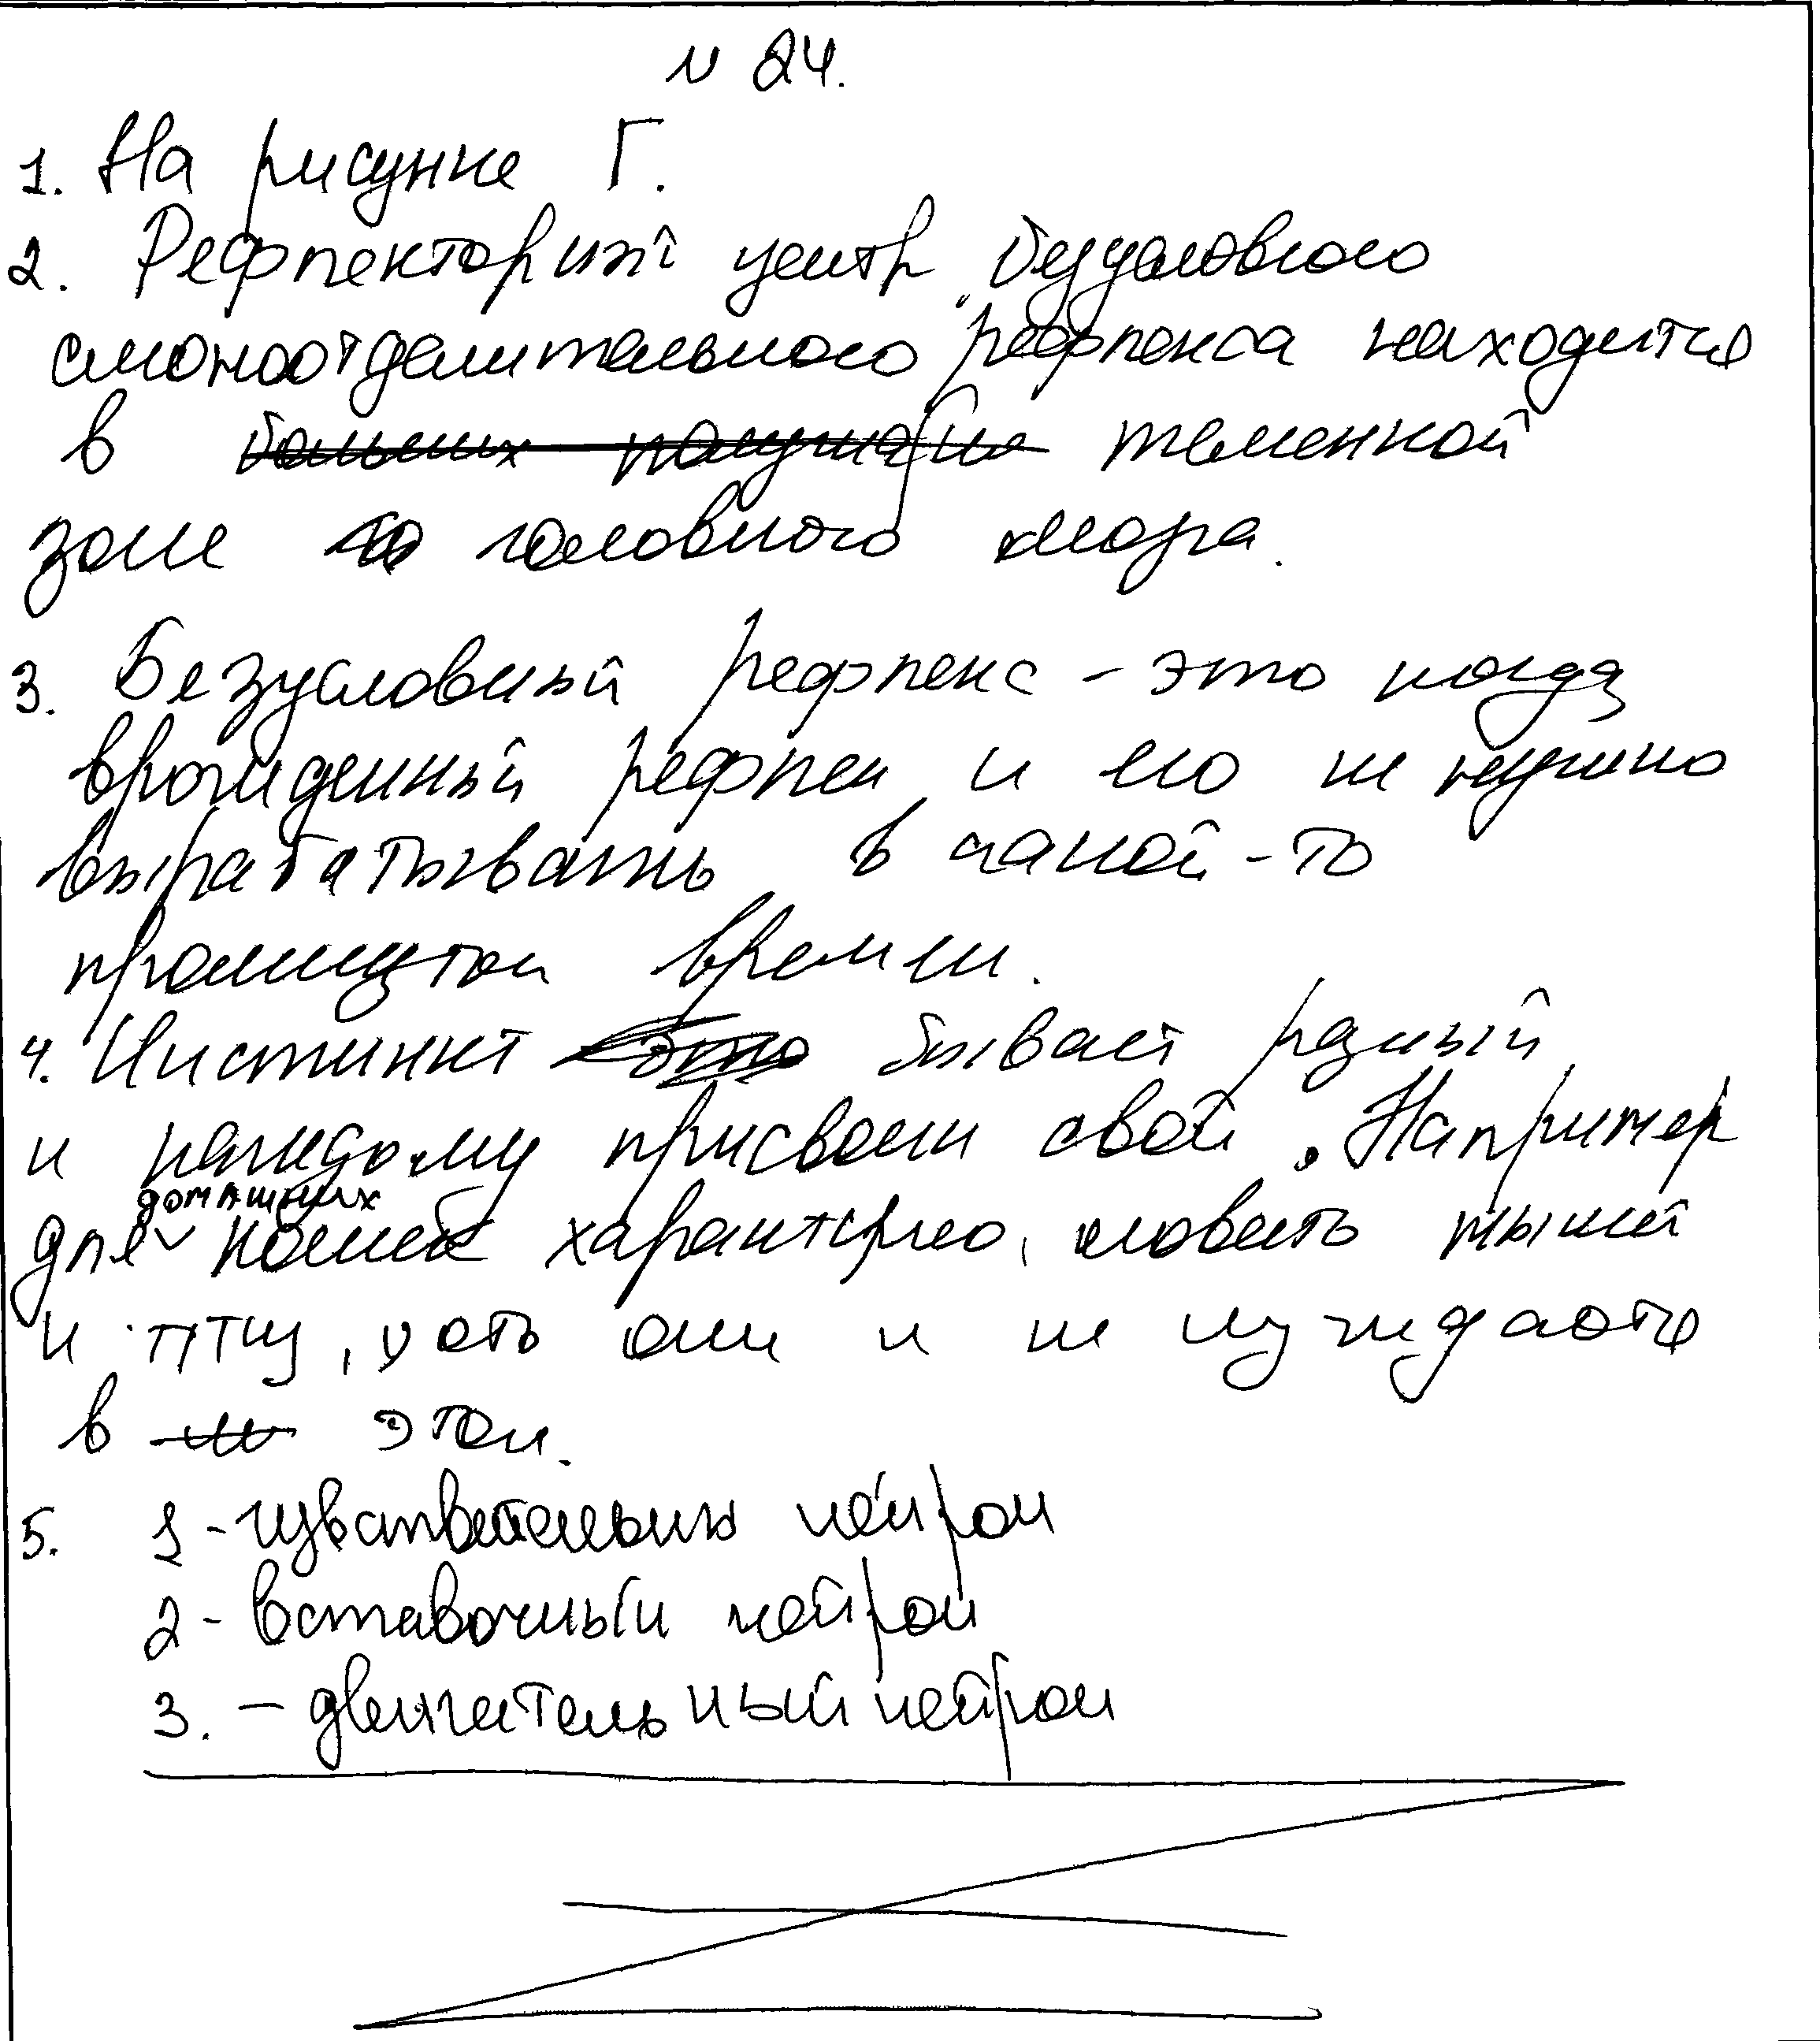 N 24.
1. На рисунке Г.
2. Рефлекторный центр безусловного
слюноотделительного рефлекса находится
в больших полушария теменной
зоне го головного мозга.
3. Безусловный рефлекс - это когда
врожденный рефлек и его не нужно
вырабатывать в какой-то
промежуток времени.
4. Инстинкт это бывает разный
и каждому присвоен свой. Например
домашних
для кошек характерно, ловить мышей
и птиц, хоть они и не нуждаются
в этом.
5. 1 - чувствительный нейрон
2 - вставочный нейрон
3. - двигательный нейрон